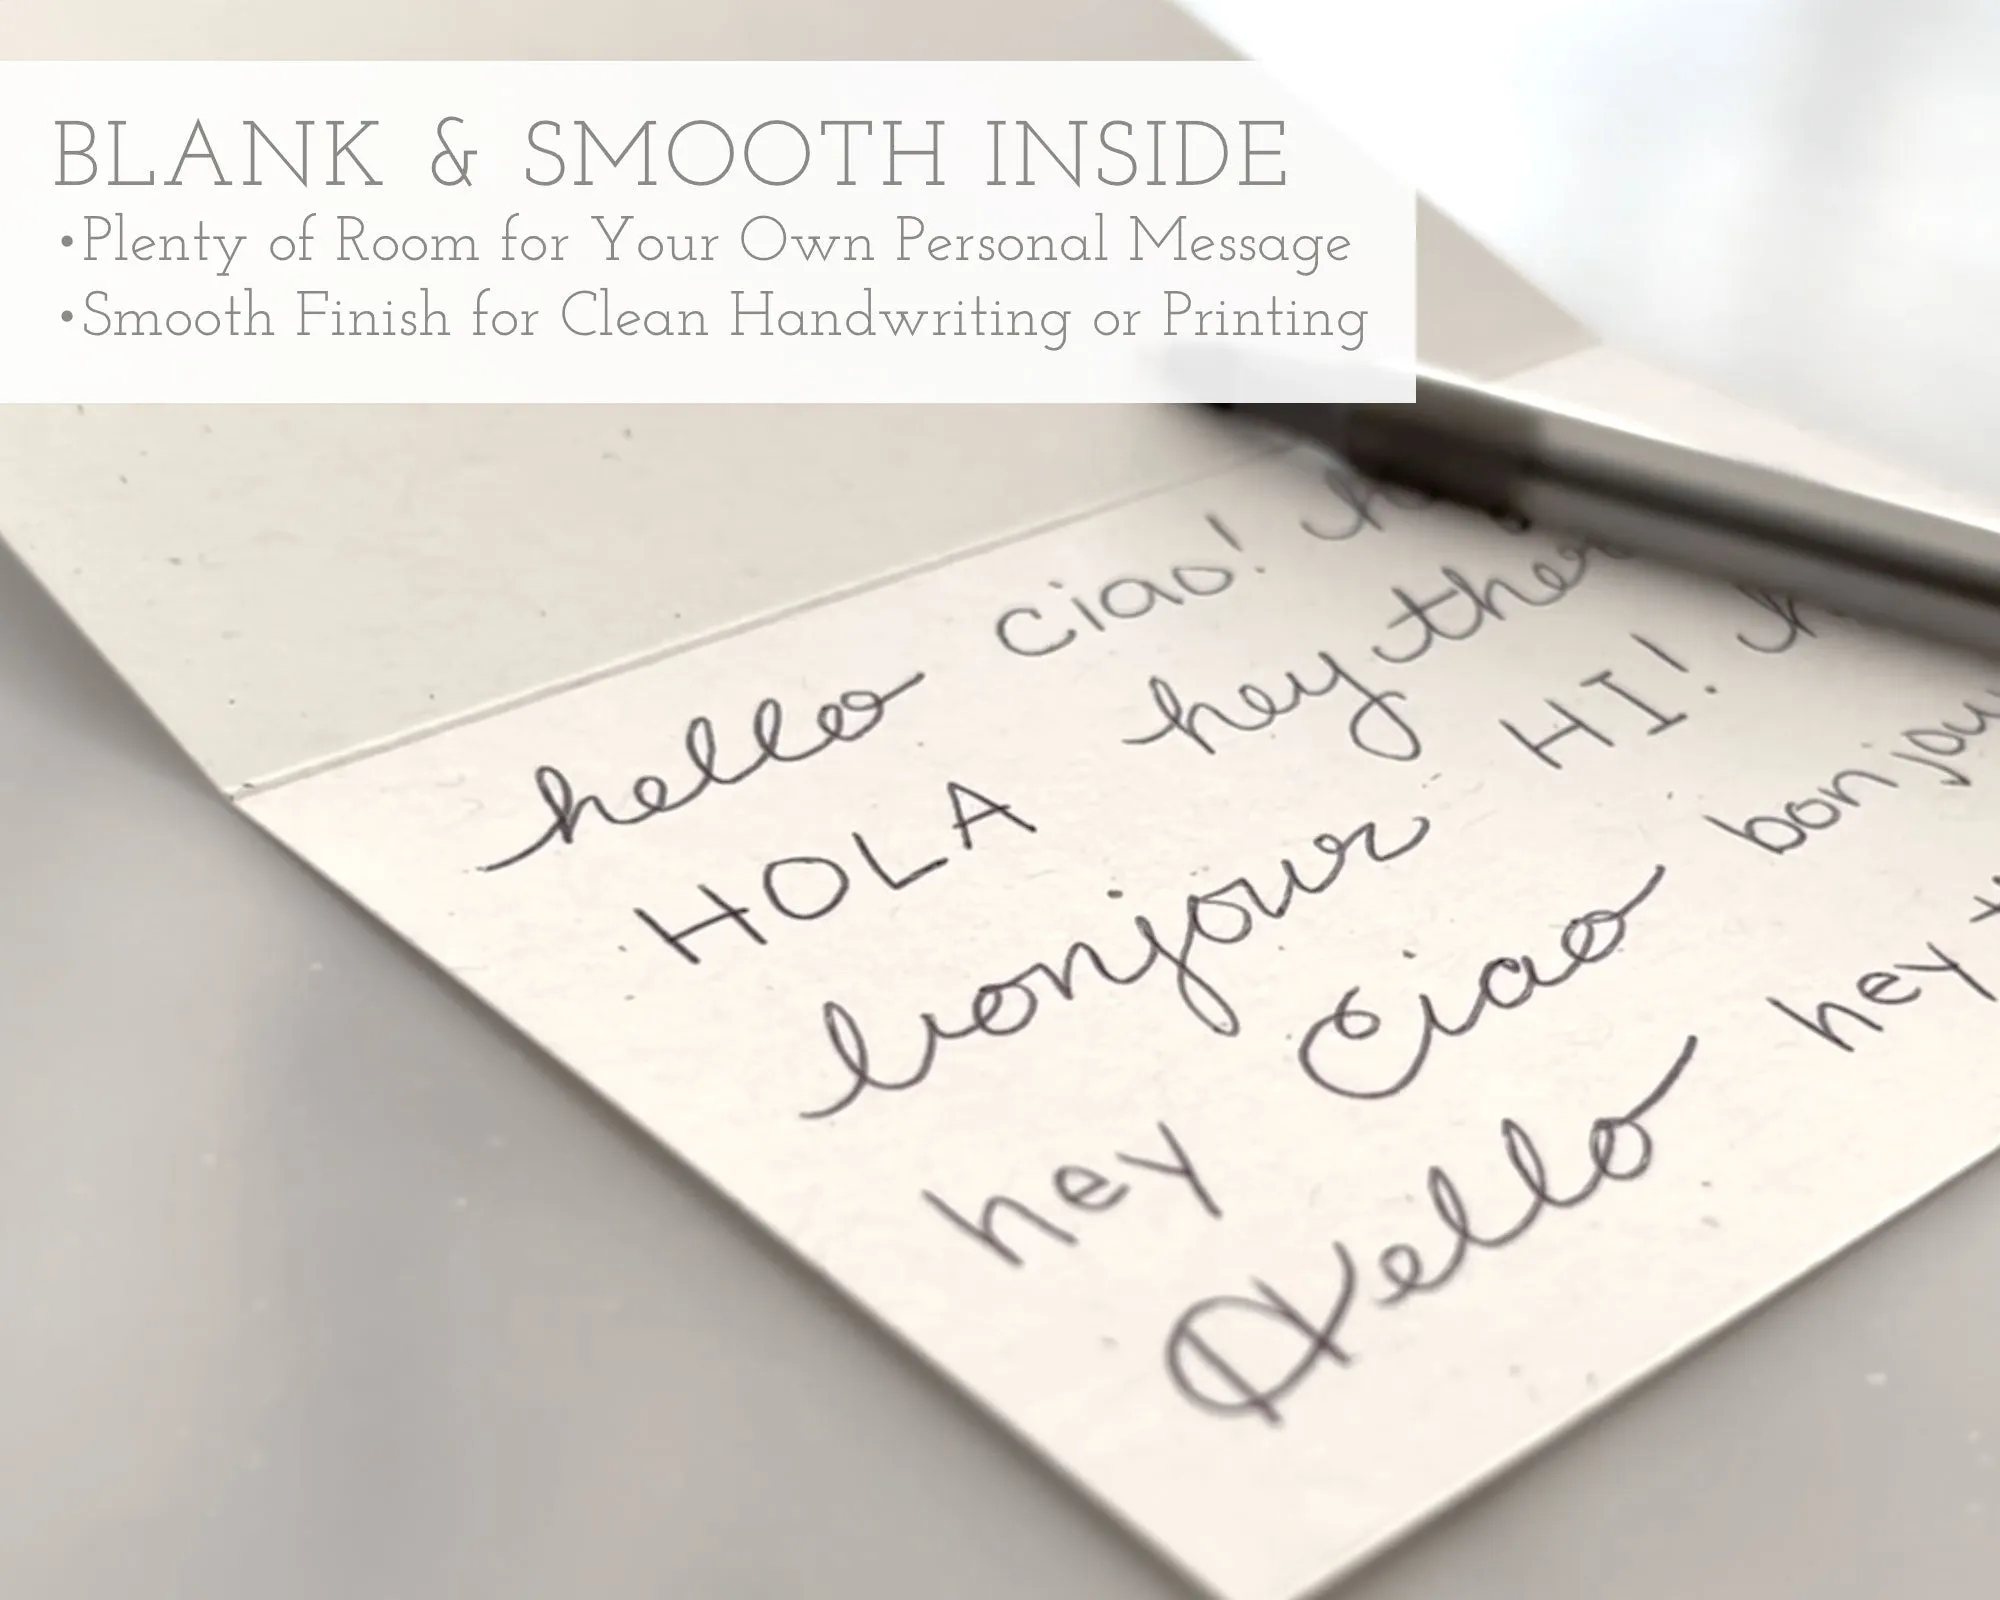 BLANK & SMOOTH INSIDE
•Plenty of Room for Your Own Personal Message
•Smooth Finish for Clean Handwriting or Printing
hello ciao!
HOLA hey there
bonjour HI!
hey ciao bonjour
Hello hey